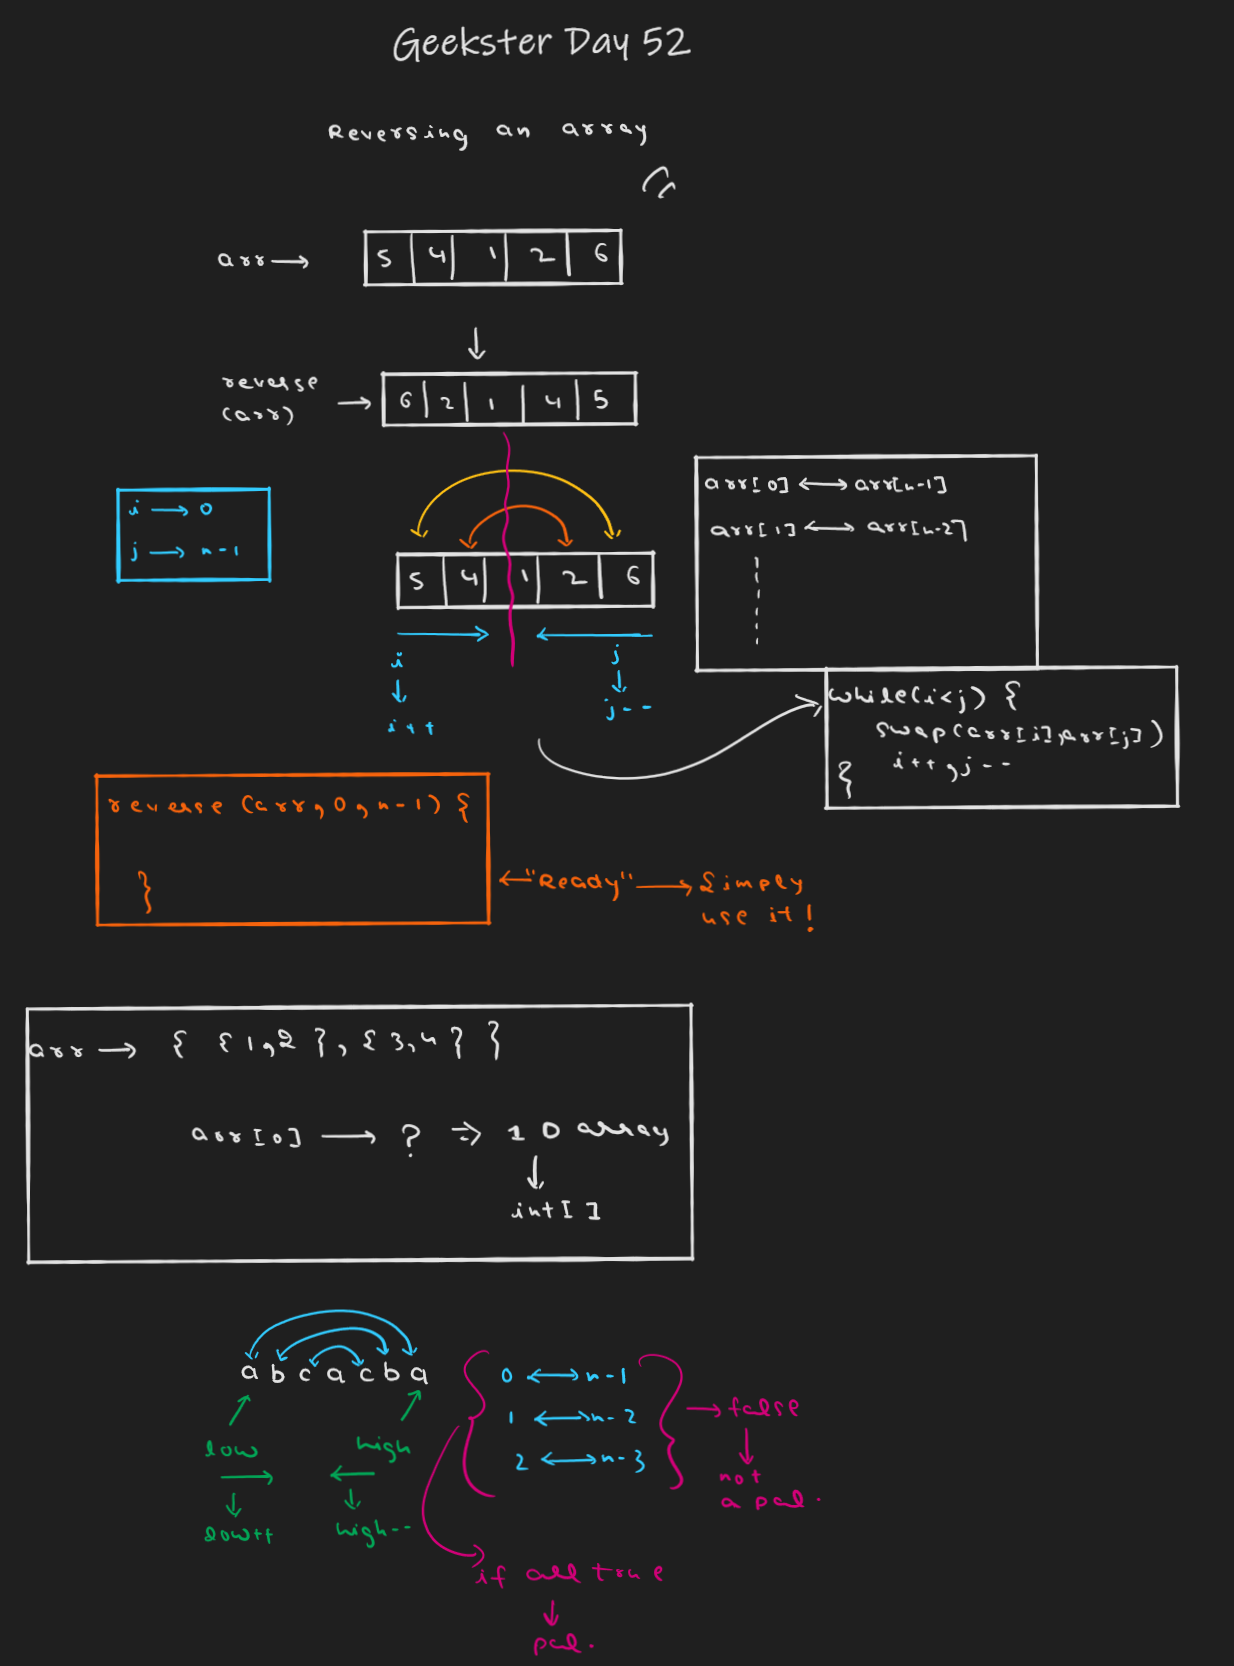 Geekster Day 52
Reversing an array
arr →
5 4 1 2 6
↓
reverse
(arr) →
6 2 1 4 5
i → 0
j → n-1
5 4 1 2 6
i
↓
i++
j
↓
j--
arr[0] ↔ arr[n-1]
arr[1] ↔ arr[n-2]
while(i<j) {
swap(arr[i],arr[j])
i++,j--
{
reverse (arr, 0, n-1) {
}
← "Ready" → Simply
use it!
arr → { {1,2}, {3,4} }
arr[0] → ? ⇒ 1 D array
↓
int[]
a b c a c b a
low
↓
low++
high
↓
high--
0 ↔ n-1
1 ↔ n-2
2 ↔ n-3
→ false
↓
not
a pal.
if all true
↓
pal.